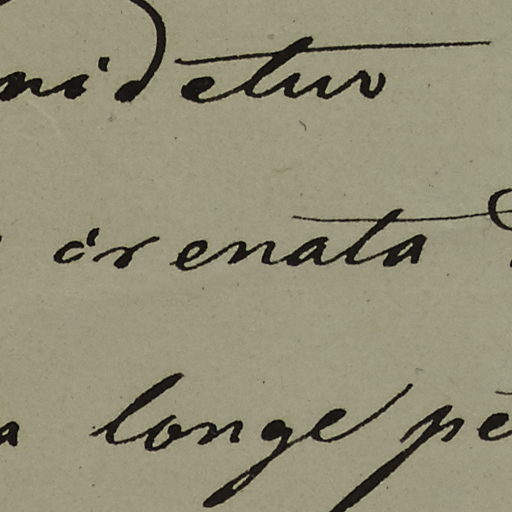 nidetur
crenata
a longe pe